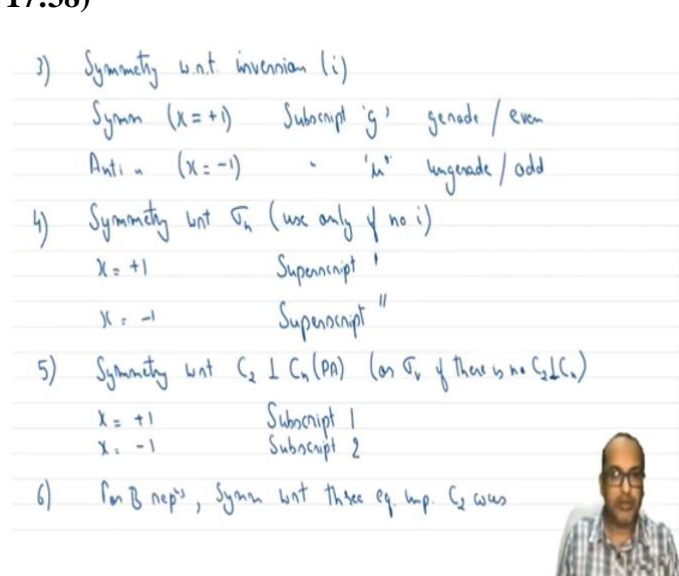 17:58)
3) Symmetry w.r.t. inversion (i)
Symm (χ = +1) Subscript 'g' gerade / even
Anti " (χ = -1) " 'u' ungerade / odd
4) Symmetry wrt σh (use only if no i)
χ = +1 Superscript '
χ = -1 Superscript "
5) Symmetry wrt C2 ⊥ Cn (PA) (or σv if there is no C2⊥Cn)
χ = +1 Subscript 1
χ = -1 Subscript 2
6) For B rep's, Symm wrt three eq. imp. C2 axes